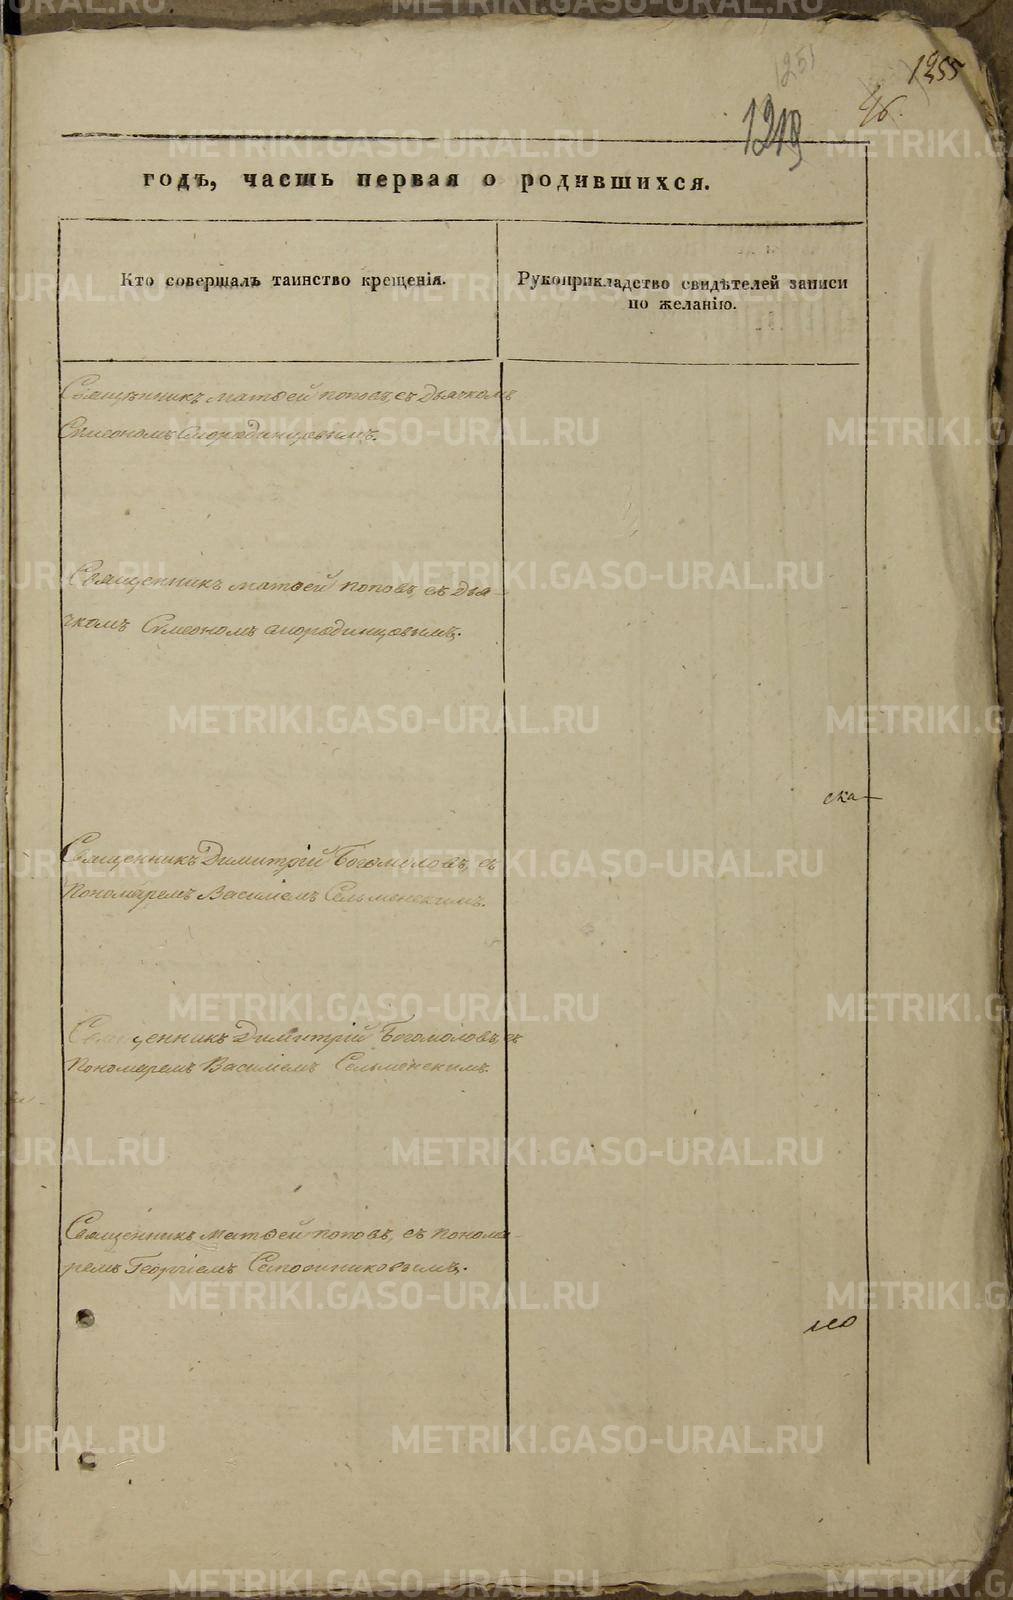 1251
1255
46.
1219
годъ, часть первая о родившихся.
Кто совершалъ таинство крещенія.
Рукоприкладство свидѣтелей записи
по желанію.
Священникъ Матѳей Поповъ, съ Дьячкомъ
Симеономъ Смородинцовымъ.
Священникъ Матѳей Поповъ, съ Дья-
чкомъ Симеономъ Смородинцовымъ.
ска-
Священникъ Димитрій Богомоловъ, съ
Пономаремъ Василіемъ Сельменскимъ.
Священникъ Димитрій Богомоловъ, съ
Пономаремъ Василіемъ Сельменскимъ.
Священникъ Матѳей Поповъ, съ Понома-
ремъ Георгіемъ Сапожниковымъ.
METRIKI.GASO-URAL.RU